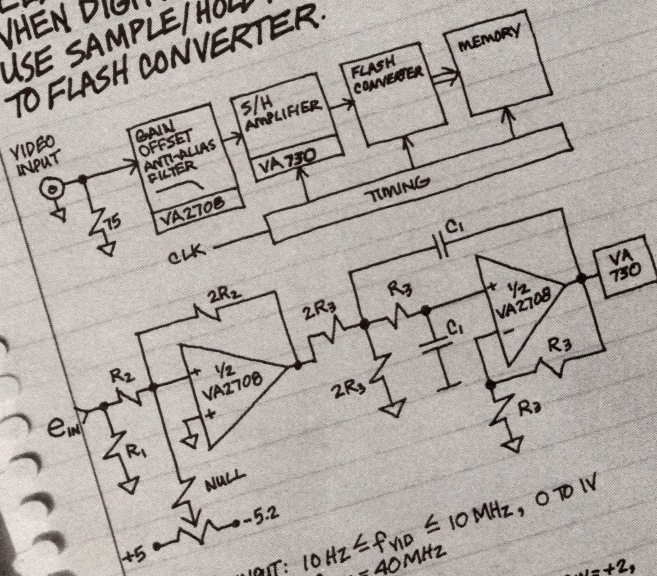 WHEN DIGIT
USE SAMPLE/HOLD
TO FLASH CONVERTER.
VIDEO
INPUT
75
GAIN
OFFSET
ANTI-ALIAS
FILTER
VA2708
S/H
AMPLIFIER
VA730
FLASH
CONVERTER
MEMORY
TIMING
CLK
eIN
R1
R2
2R2
+
1/2
VA2708
+
NULL
+5
-5.2
2R3
2R3
R3
C1
C1
+
1/2
VA2708
-
R3
R3
VA
730
INPUT: 10 HZ ≤ fVID ≤ 10 MHZ, 0 TO 1V
= 40 MHZ
= +2,